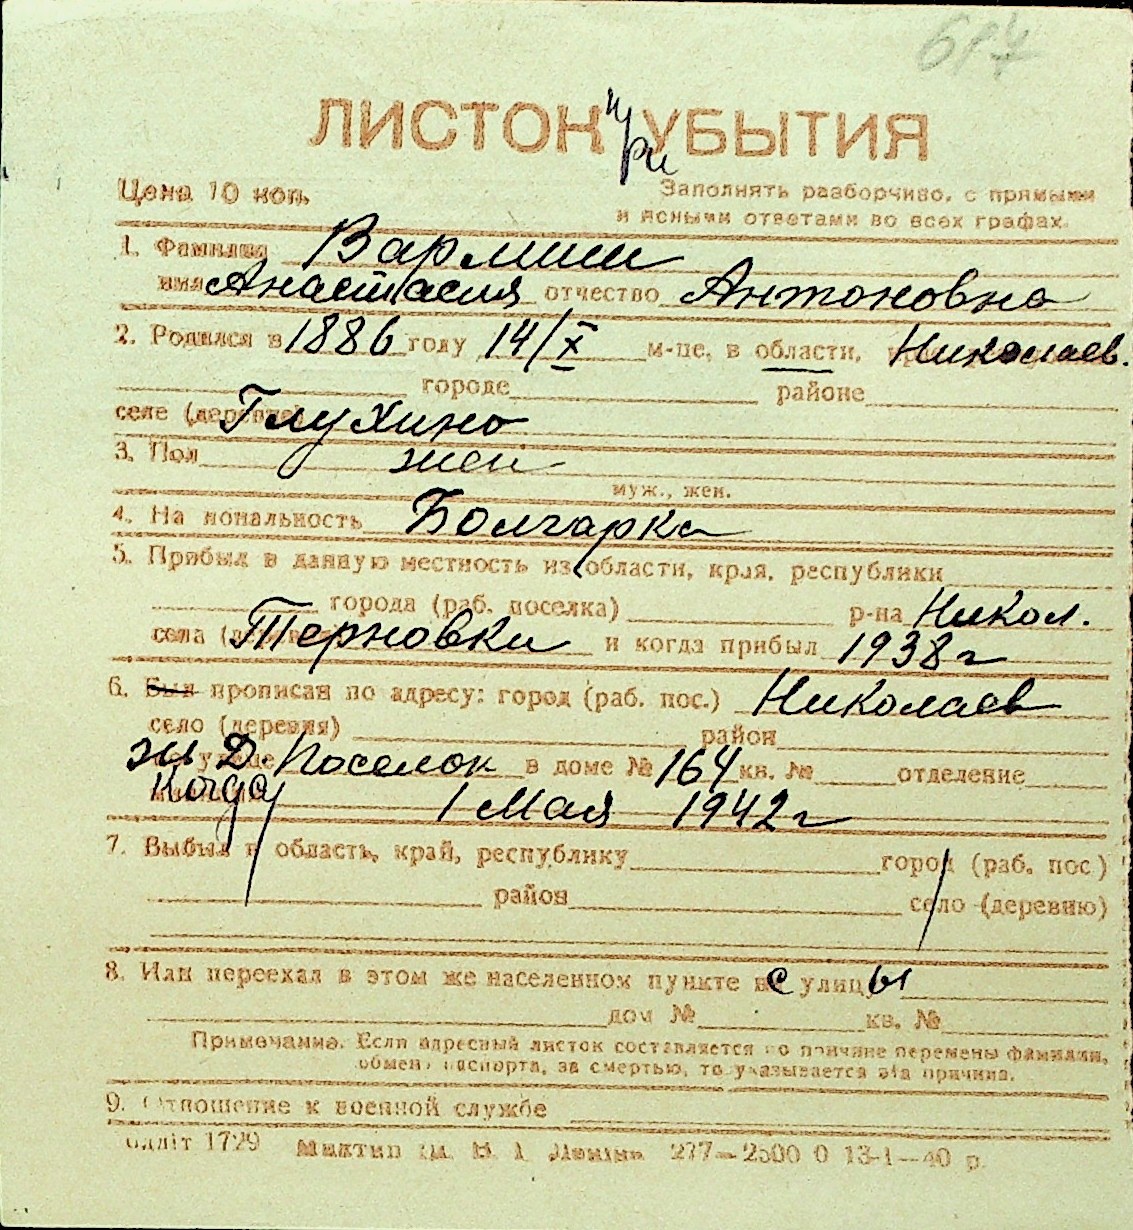 617
ЛИСТОК при УБЫТИЯ
Цена 10 коп. Заполнять разборчиво, с прямыми
и ясными ответами во всех графах.
1. Фамилия Вармиш
имя Анастасия отчество Антоновна
2. Родился в 1886 году 14/X м-це, в области, Николаев.
городе районе
селе (деревне) Глухино
3. Пол жен
муж., жен.
4. На иональность Болгарка
5. Прибыл в данную местность из области, края, республики
города (раб. поселка) р-на Никол.
села Терновки и когда прибыл 1938 г
6. Был прописан по адресу: город (раб. пос.) Николаев
село (деревня) район
Д. Поселок в доме № 164 кв. № отделение
Когда 1 Мая 1942 г
7. Выбыл в область, край, республику город (раб. пос)
район село (деревню)
8. Или переехал в этом же населенном пункте с улицы
дом № кв. №
Примечание. Если адресный листок составляется по причине перемены фамилии,
обмена паспорта, за смертью, то указывается эта причина.
9. Отношение к военной службе
одліт 1729 277—2500 0 13-1—40 р.